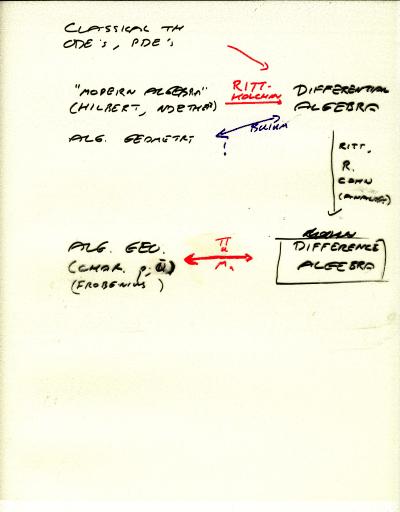 CLASSICAL TH
ODE's, PDE's
"MODERN ALGEBRA" RITT- DIFFERENTIAL
(HILBERT, NOETHER) KOLCHIN ALGEBRA
ALG. GEOMETRY BUIUM
!
RITT,
R.
COHN
(ANALOG)
ALG. GEO. Π DIFFERENCE
(CHAR. p, ALGEBRA
(FROBENIUS)